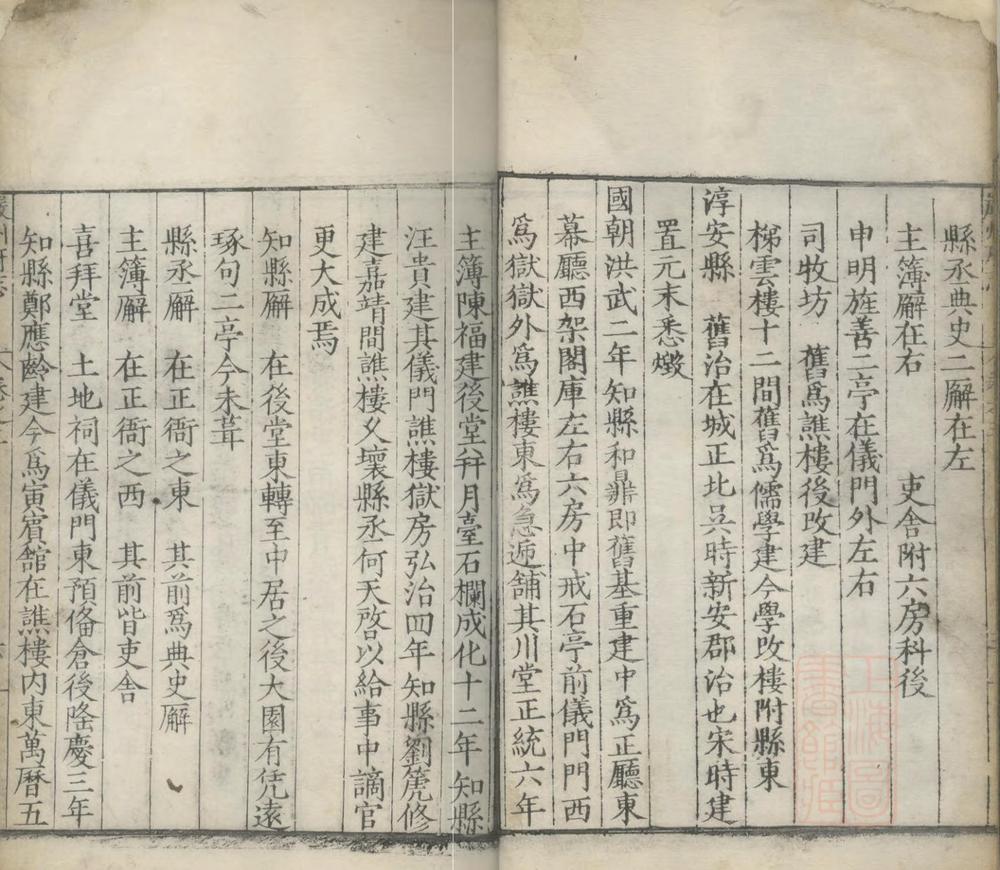 縣丞典史二廨在左
主簿廨在右 吏舍附六房科後
申明旌善二亭在儀門外左右
司牧坊 舊爲譙樓後改建
梯雲樓十二間舊爲儒學建今學改樓附縣東
淳安縣 舊治在城正北吳時新安郡治也宋時建
置元末悉燬
國朝洪武二年知縣和鼎即舊基重建中爲正廳東
幕廳西架閣庫左右六房中戒石亭前儀門門西
爲獄獄外爲譙樓東爲急遞舖其川堂正統六年
主簿陳福建後堂八年月臺石欄成化十二年知縣
汪貴建其儀門譙樓獄房弘治四年知縣劉箎修
建嘉靖間譙樓又壞縣丞何天啓以給事中謫官
更大成焉
知縣廨 在後堂東轉至中居之後大園有凭遠
琢句二亭今未葺
縣丞廨 在正衙之東 其前爲典史廨
主簿廨 在正衙之西 其前皆吏舍
喜拜堂 土地祠在儀門東預俻倉後隆慶三年
知縣鄭應齡建今爲寅賓舘在譙樓内東萬曆五
嚴州府志